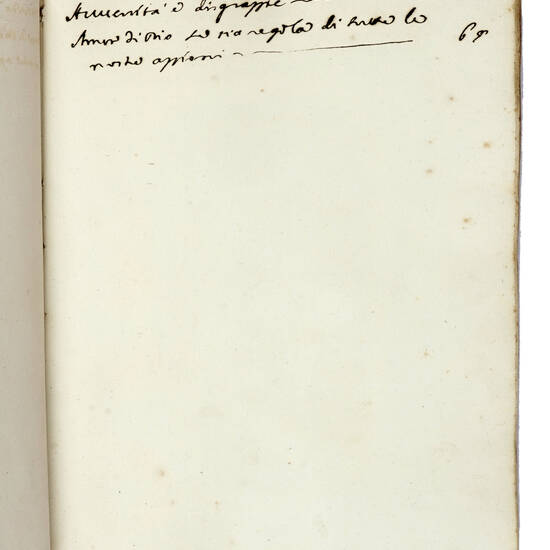 Auuersità e disgrazie
Amor di Dio se sia regola di tutte le
nostre azzioni 69